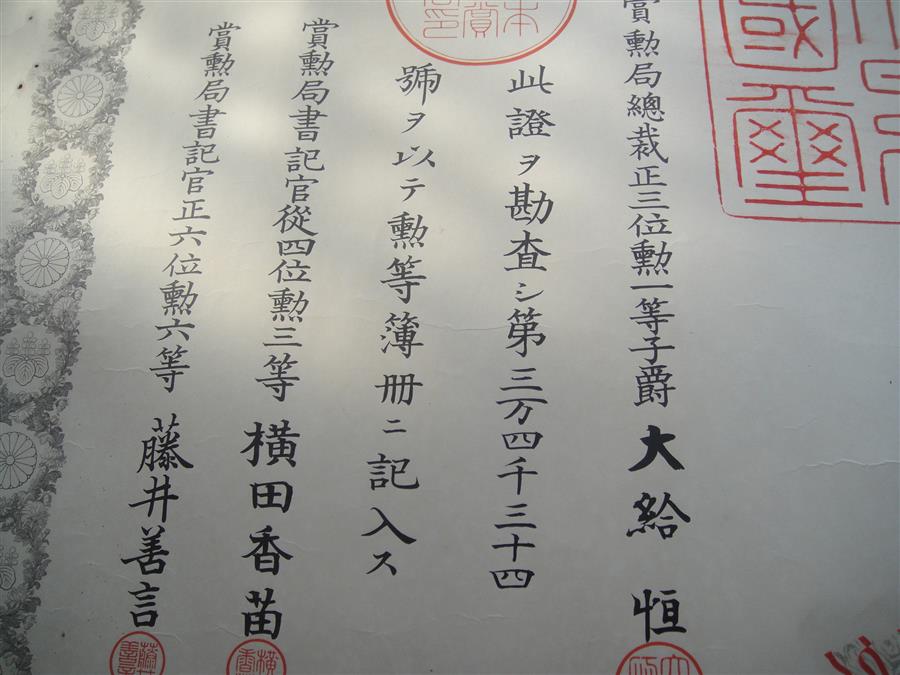 賞勲局總裁正三位勲一等子爵大給恒
此證ヲ勘査シ第三万四千三十四
號ヲ以テ勲等簿冊ニ記入ス
賞勲局書記官從四位勲三等横田香苗
賞勲局書記官正六位勲六等藤井善言
國璽